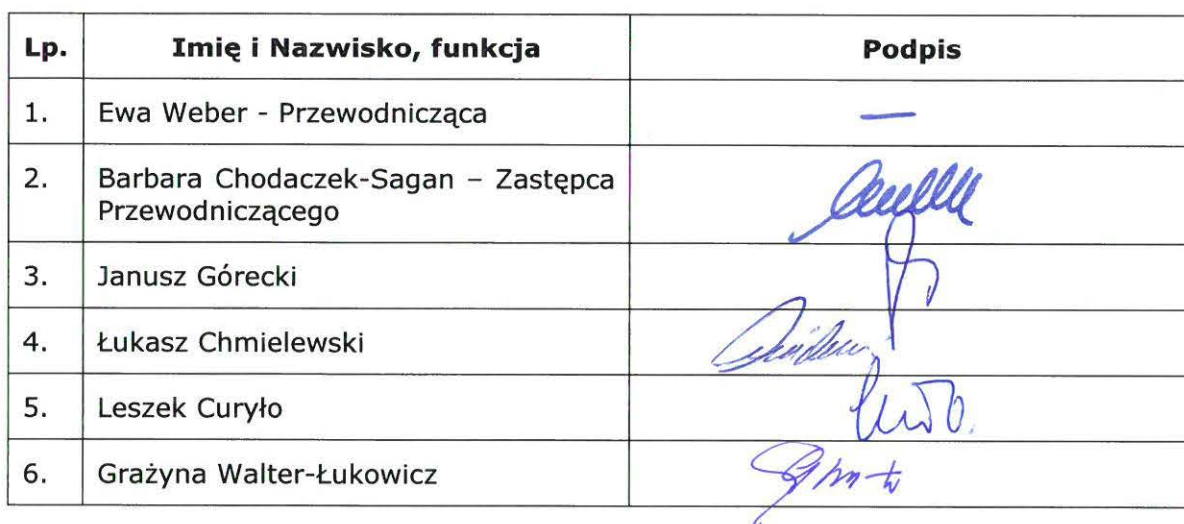 Lp. Imię i Nazwisko, funkcja Podpis
1. Ewa Weber - Przewodnicząca —
2. Barbara Chodaczek-Sagan – Zastępca
Przewodniczącego
3. Janusz Górecki
4. Łukasz Chmielewski
5. Leszek Curyło
6. Grażyna Walter-Łukowicz